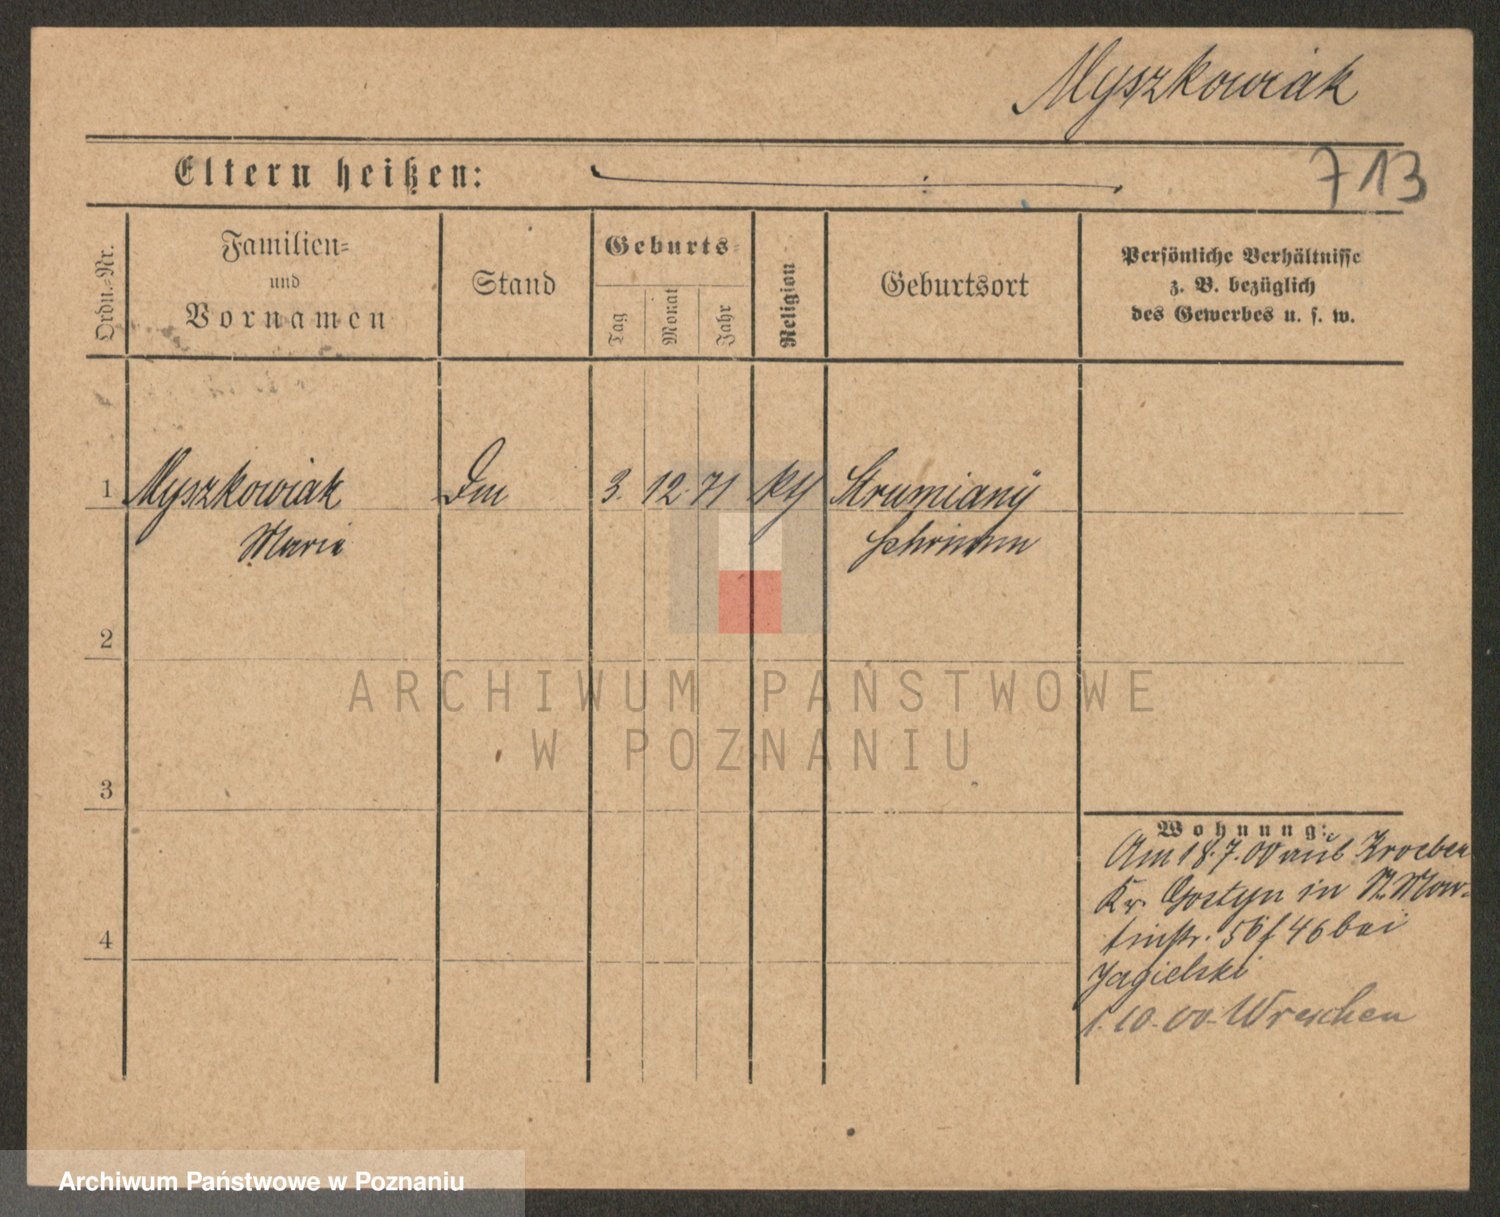 Myszkowiak
713
Eltern heißen:
Ordn.-Nr.
Familien-
und
Vornamen
Stand
Geburts-
Tag
Monat
Jahr
Religion
Geburtsort
Persönliche Verhältnisse
z. B. bezüglich
des Gewerbes u. s. w.
1 Myszkowiak 3. 12. 71 Strumiany
Marie Schrimm
2
3
4
Wohnung:
Am 18.7.00 aus Kroeben
Kr. Gostyn in St. Mar-
tinstr. 46 bei
Jagielski
1.10.00 Wreschen
ARCHIWUM PAŃSTWOWE
W POZNANIU
Archiwum Państwowe w Poznaniu